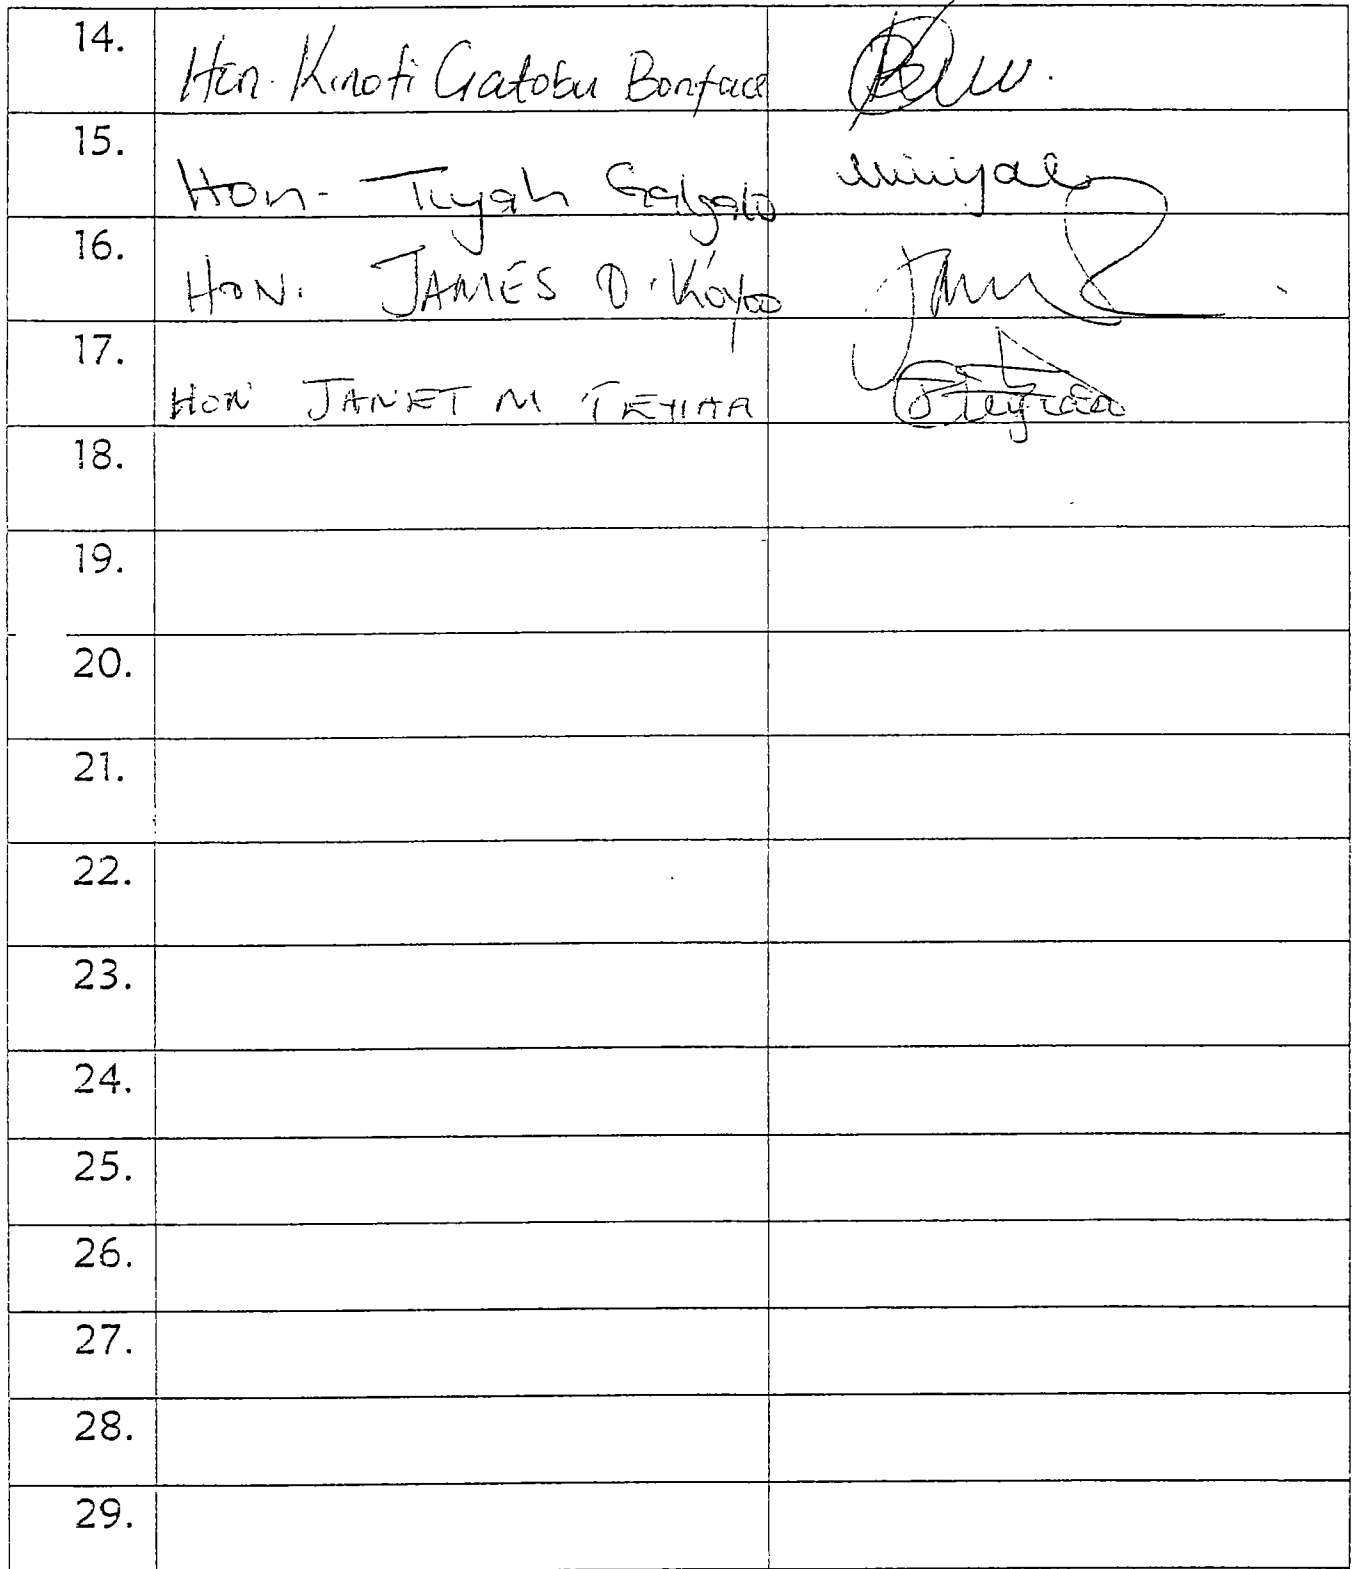 14. Hon. Kinoti Gatobu Boniface
15. Hon. Tiyah Galgalo
16. HON. JAMES O. K'oyoo
17. HON JANET M TEYIAA
18.
19.
20.
21.
22.
23.
24.
25.
26.
27.
28.
29.